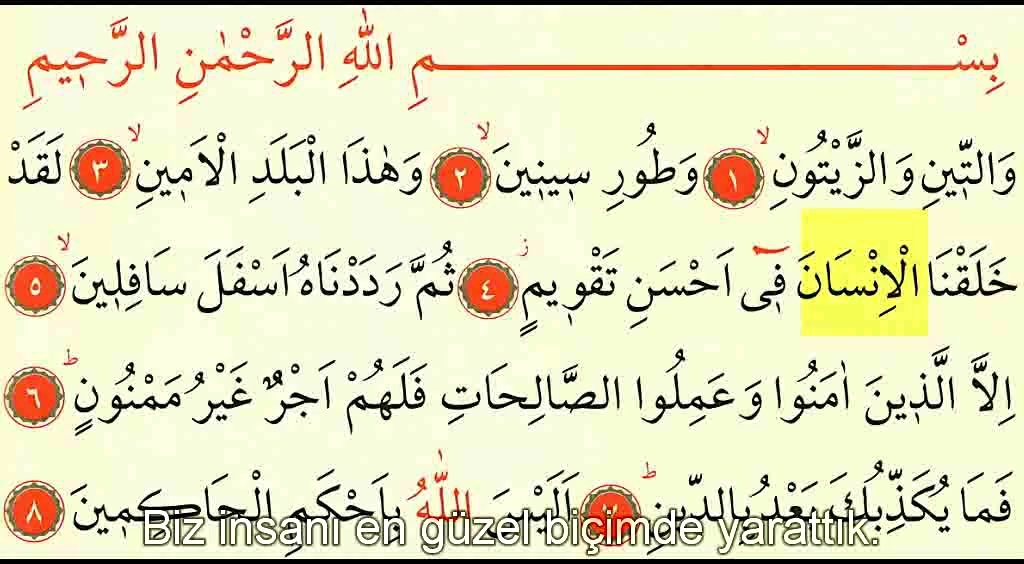 بِسْمِ اللّٰهِ الرَّحْمٰنِ الرَّح۪يمِ
وَالتّ۪ينِ وَالزَّيْتُونِۙ ﴿١﴾ وَطُورِ س۪ين۪ينَۙ ﴿٢﴾ وَهٰذَا الْبَلَدِ الْاَم۪ينِۙ ﴿٣﴾ لَقَدْ
خَلَقْنَا الْاِنْسَانَ ف۪ٓي اَحْسَنِ تَقْو۪يمٍۘ ﴿٤﴾ ثُمَّ رَدَدْنَاهُ اَسْفَلَ سَافِل۪ينَۙ ﴿٥﴾
اِلَّا الَّذ۪ينَ اٰمَنُوا وَعَمِلُوا الصَّالِحَاتِ فَلَهُمْ اَجْرٌ غَيْرُ مَمْنُونٍۜ ﴿٦﴾
فَمَا يُكَذِّبُكَ بَعْدُ بِالدّ۪ينِۜ ﴿٧﴾ اَلَيْسَ اللّٰهُ بِاَحْكَمِ الْحَاكِم۪ينَ ﴿٨﴾
Biz insanı en güzel biçimde yarattık.